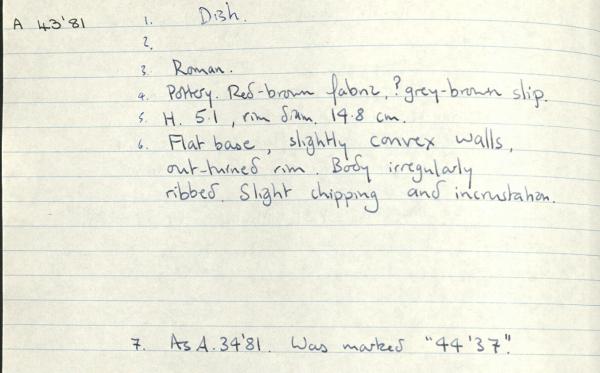 A 43'81 1. Dish.
2.
3. Roman.
4. Pottery. Red-brown fabric, ?grey-brown slip.
5. H. 5.1, rim diam. 14.8 cm.
6. Flat base, slightly convex walls,
out-turned rim. Body irregularly
ribbed. Slight chipping and incrustation.
7. As A.34'81. Was marked "44'37".